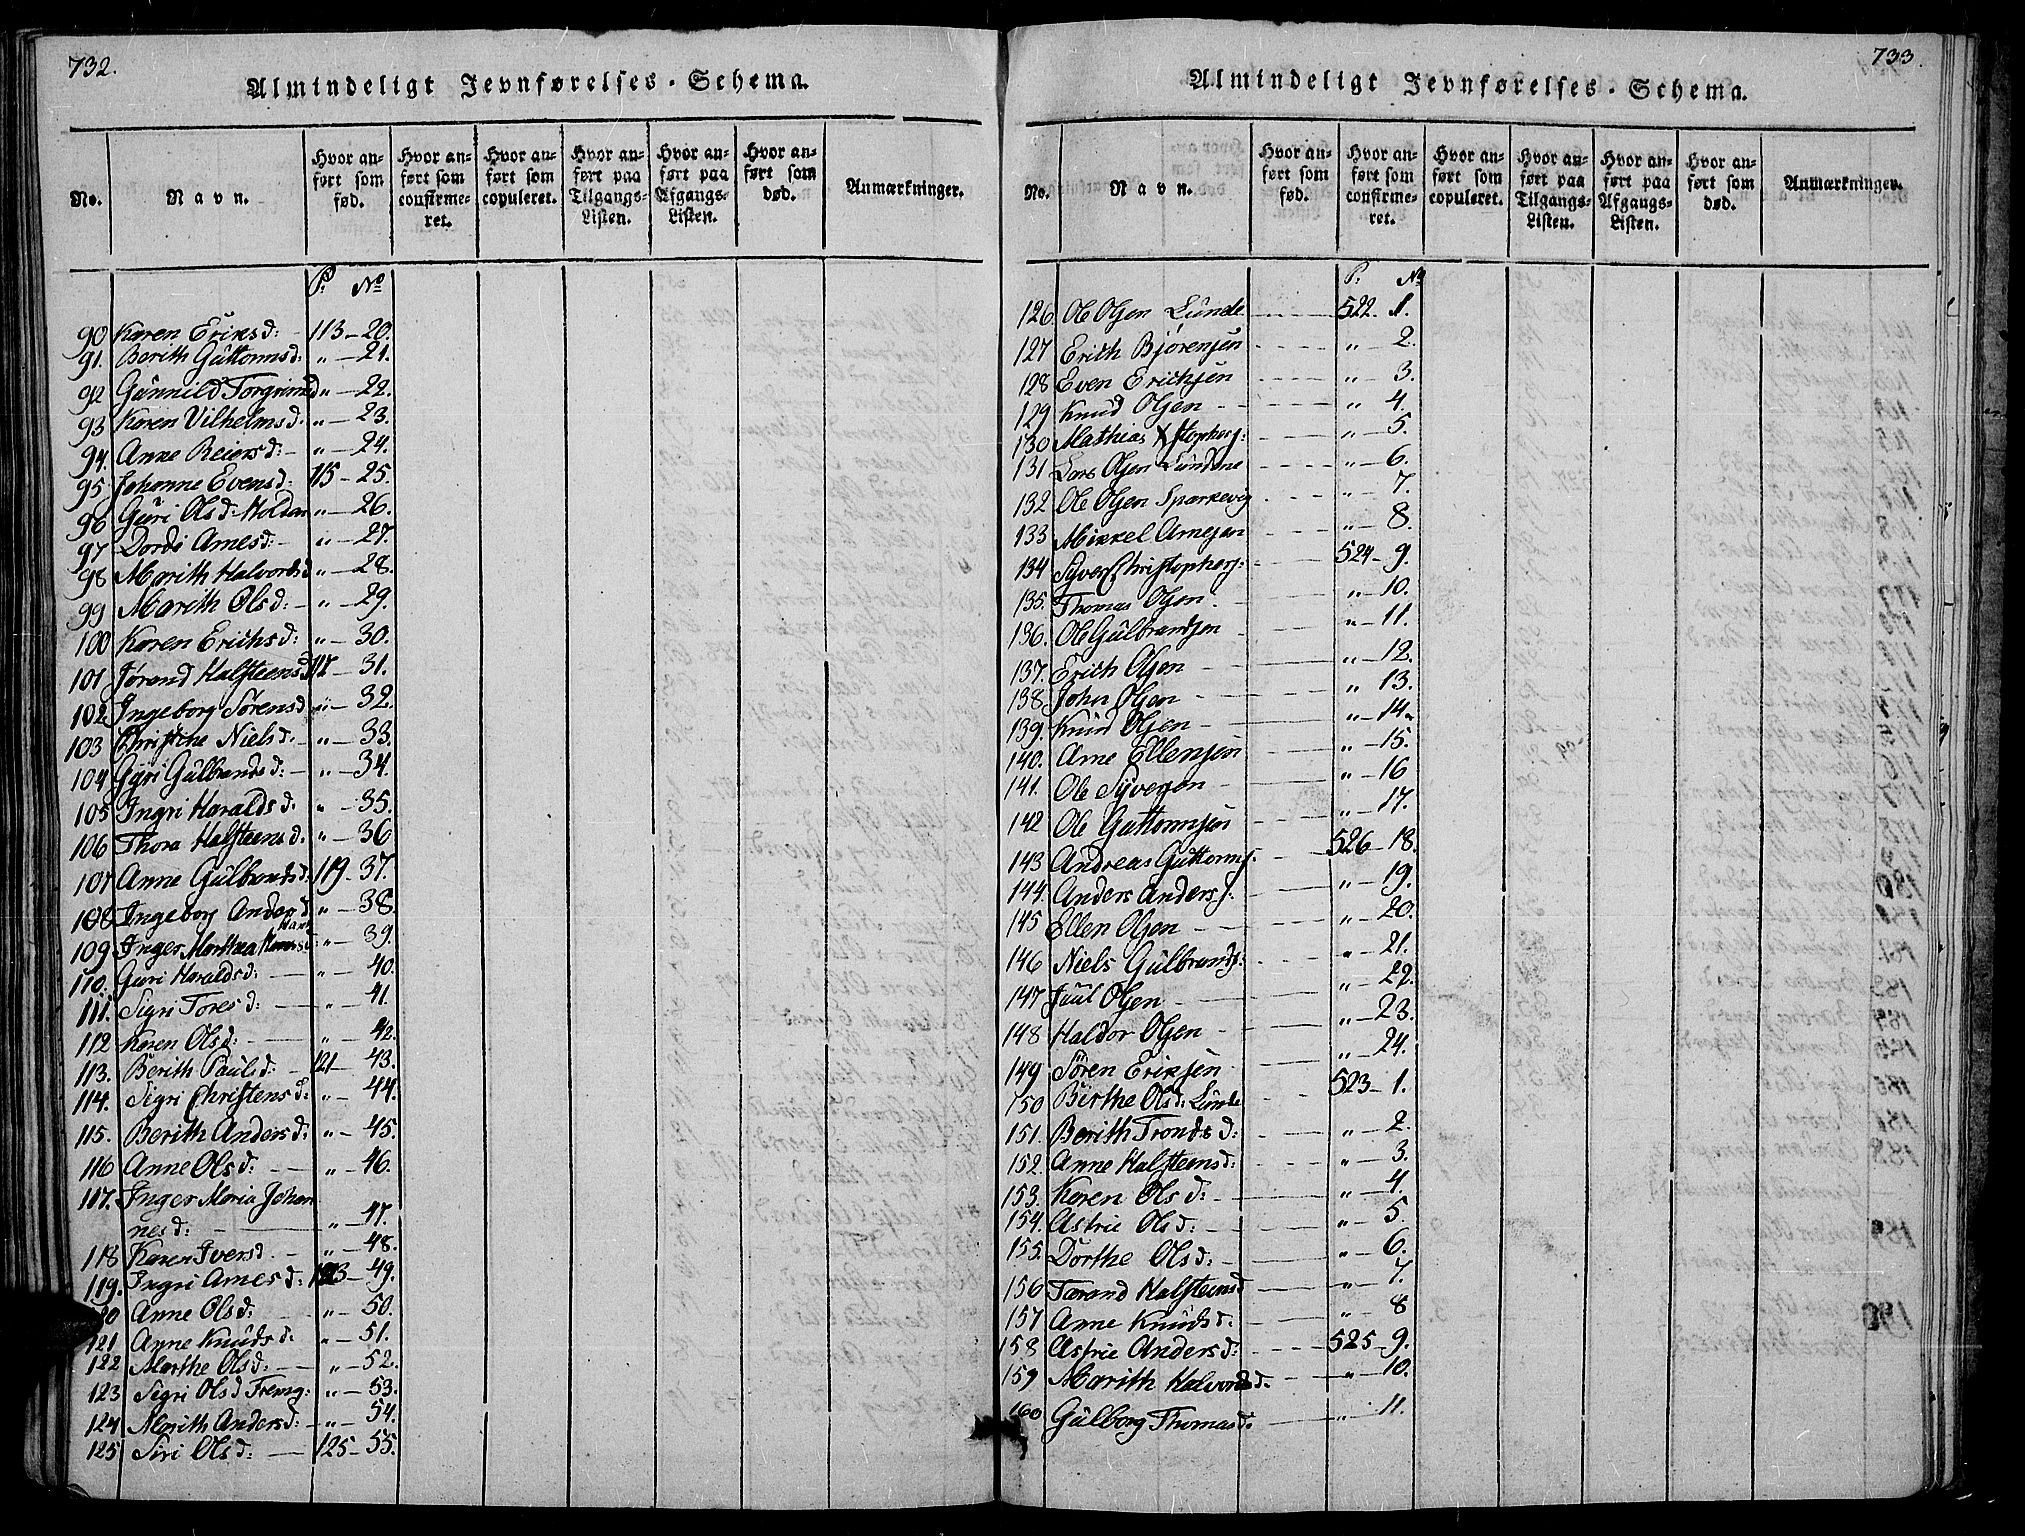 732.
Almindeligt Jevnførelses-Schema.
No.
Navn.
Hvor an-
ført som
fød.
Hvor an-
ført som
confirme-
ret.
Hvor an-
ført som
copuleret.
Hvor an-
ført paa
Tilgangs-
Listen.
Hvor an-
ført paa
Afgangs-
Listen.
Hvor an-
ført som
død.
Anmærkninger.
P. No
90 Karen Eriksd: 113-20.
91. Berith Guttormsd: „-21.
92 Gunnild Torgrimsd „-22.
93 Karen Vilhelmsd. „-23.
94. Anne Reiersd:- „-24.
95. Johanne Evensd: 115-25.
96 Guri Olsd: Holdan „-26.
97 Dordi Arnesd:- „-27.
98 Marith Halvorsd „-28.
99 Marith Olsd:- „-29.
100 Karen Erichsd: „-30.
101 Jørand Halfsteensd 117-31.
102 Ingeborg Sørensd „-32.
103 Christiche Nielsd.- „-33.
104 Gyri Gulbrandsd:- „-34.
105 Ingri Haraldsd. „-35.
106 Thora Halfsteensd: „-36
107 Anne Gulbrandsd. 119-37.
108 Ingeborg Andersd. „-38.
109 Inger Marthea Hansd: „-39.
110. Guri Haraldsd:- „-40.
111. Sigri Toresd:- „-41.
112 Karen Olsd:- „-42.
113. Berith Paulsd:- 121-43.
114. Sigri Christensd: „-44.
115. Berith Andersd: „-45.
116 Anne Olsd:- „-46.
117. Inger Maria Johan
nesd:- „-47.
118 Karen Iversd.- „-48.
119. Ingri Arnesd: 123-49.
120 Anne Olsd: „-50.
121 Anne Knudsd. „-51.
122 Marthe Olsd:- „-52.
123 Sigri Olsd „-53.
124 Marith Andersd:- „-54.
125 Siri Olsd:- 125-55.
733.
Almindeligt Jevnførelses-Schema.
No.
Navn.
Hvor an-
ført som
fød.
Hvor an-
ført som
confirme-
ret.
Hvor an-
ført som
copuleret.
Hvor an-
ført paa
Tilgangs-
Listen.
Hvor an-
ført paa
Afgangs-
Listen.
Hvor an-
ført som
død.
Anmærkninger.
P. No
126 Ole Olsen Lunde 522. 1.
127 Erith Bjørensen „-2.
128 Even Erichsen „-3.
129 Knud Olsen „-4.
130 Mathias Xstophers: „-5.
131 Lars Olsen Lundene „-6.
132 Ole Olsen Sparkevig „-7.
133 Mikkel Arnesen „-8.
134 Syver Christophers: 524-9.
135. Thomas Olsen „-10.
136. Ole Gulbrandsen „-11.
137. Erich Olsen „-12.
138. John Olsen „-13.
139. Knud Olsen „-14.
140. Arne Ellensen „-15.
141. Ole Syversen „-16
142 Ole Guttormsen „-17.
143 Andreas Guttorms. 526-18.
144. Anders Anders s. „-19.
145 Ellen Olsen „-20.
146 Niels Gulbrands: „-21.
147 Juul Olsen „-22.
148 Haldor Olsen „-23.
149 Sören Eriksen „-24.
150 Birthe Olsd: Lunde 523-1.
151. Berith Trondsd: „-2.
152. Anne Halfsteensd: „-3.
153. Karen Olsd:- „-4.
154. Astrie Olsd:- „-5.
155. Dorthe Olsd:- „-6.
156 Tarand Halfsteensd „-7.
157 Anne Knudsd: „-8
158 Astrie Andersd: 525-9.
159 Marith Halvorsd. „-10.
160 Gulborg Thomasd. „-11.